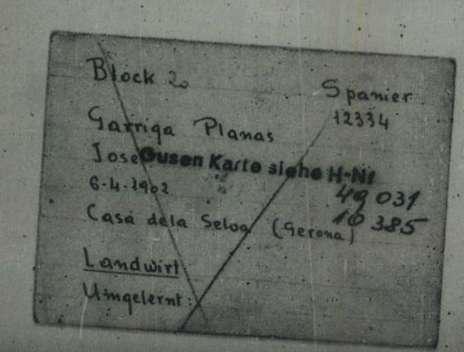 Block 20
Spanier
12334
Garriga Planas
Jose Gusen Karte siehe H-Nr
6-4-1902
49 031
10 385
Casá dela Selva (Gerona)
Landwirt
Umgelernt: